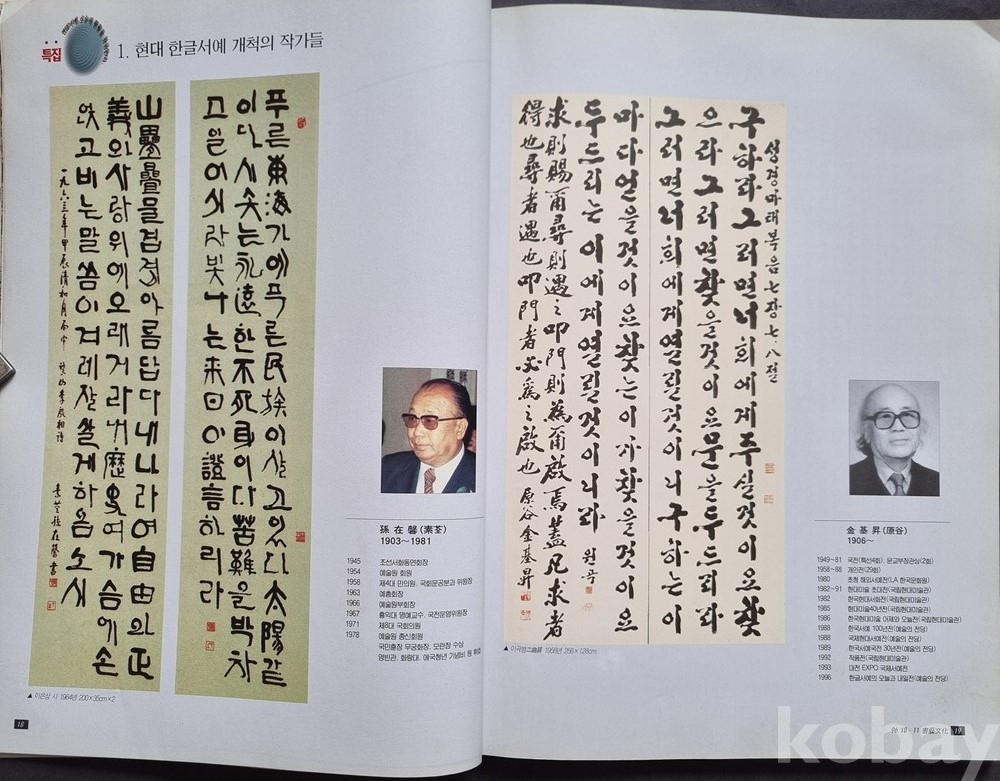 특집
1. 현대 한글서예 개척의 작가들
푸른東海가에푸른民族이살고있다太陽같
이다시솟는永遠한不死身이다苦難을박차
고일어서라빛나는來日이證言하리라
山疊疊물겹겹아름답다내나라여自由와正
義와사랑위에오래거라내歷史여가슴에손
얹고비는말씀이겨레잘살게하옵소서
甲辰淸和月雨中 鷺山李殷相詩
素荃孫在馨書
孫 在 馨 (素荃)
1903~1981
1945 조선서화동연회장
1954 예술원 회원
1958 제4대 민의원, 국회문공분과 위원장
1963 예총회장
1966 예술원부회장
1967 홍익대 명예교수, 국전운영위원장
1971 제8대 국회의원
1978 예술원 종신회원
국민훈장 무궁화장, 모란장 수상
▲ 이은상 시 1964년 200×35cm×2
18
성경마태복음七장七·八절
구하라그러면너희에게주실것이요찾
으라그러면찾을것이요문을두드리라
그러면너희에게열릴것이니구하는이
마다얻을것이요찾는이가찾을것이요
두드리는이에게열릴것이니라 원곡
求則賜爾尋則遇之叩門則爲爾啟焉蓋凡求者
得也尋者遇也叩門者必爲之啟也 原谷金基昇
1958년 256×128cm
金 基 昇 (原谷)
1906~
1949~81 국전(특선4회), 문교부장관상(2회)
1958~88 개인전(29회)
1980 초청 해외서예전(LA 한국문화원)
1982~91 현대미술 초대전(국립현대미술관)
1982 한국현대서화전(국립현대미술관)
1985 현대미술40년전(국립현대미술관)
1986 한국현대미술 어제와 오늘전(국립현대미술관)
1988 한국서예 100년전(예술의 전당)
1988 국제현대서예전(예술의 전당)
1989 한국서예국전 30년전(예술의 전당)
1992 작품전(국립현대미술관)
1993 대전 EXPO 국제서예전
1996 한글서예의 오늘과 내일전(예술의 전당)
96 10·11 書藝文化 19
kobay